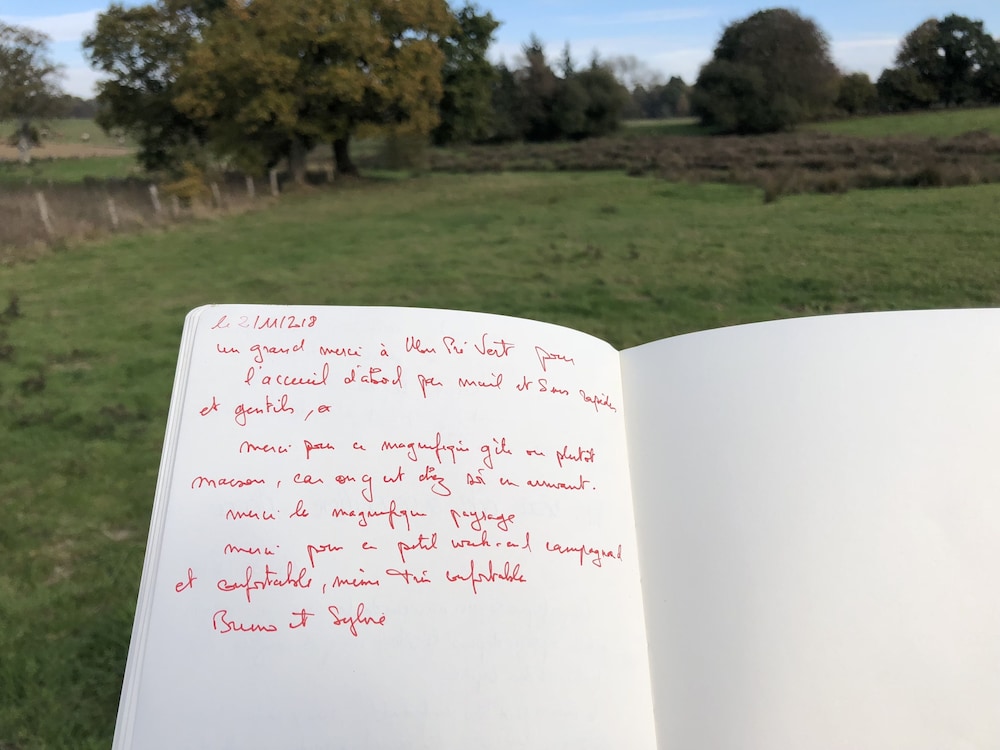 le 2/11/218
un grand merci à Mon Pré Vert pour
l'accueil d'abord par mail et Sms rapides
et gentils,
merci pour ce magnifique gîte ou plutôt
maison, car on y est chez soi en arrivant.
merci le magnifique paysage
merci pour ce petit week-end campagnard
et confortable, même très confortable
Bruno et Sylvie